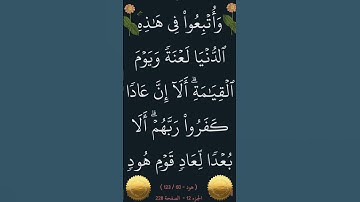 وَأُتْبِعُوا۟ فِى هَـٰذِهِ
ٱلدُّنْيَا لَعْنَةً وَيَوْمَ
ٱلْقِيَـٰمَةِ ۗ أَلَآ إِنَّ عَادًا
كَفَرُوا۟ رَبَّهُمْ ۗ أَلَا
بُعْدًا لِّعَادٍ قَوْمِ هُودٍ
( هود - 60 / 123 )
الجزء 12 - الصفحة 228